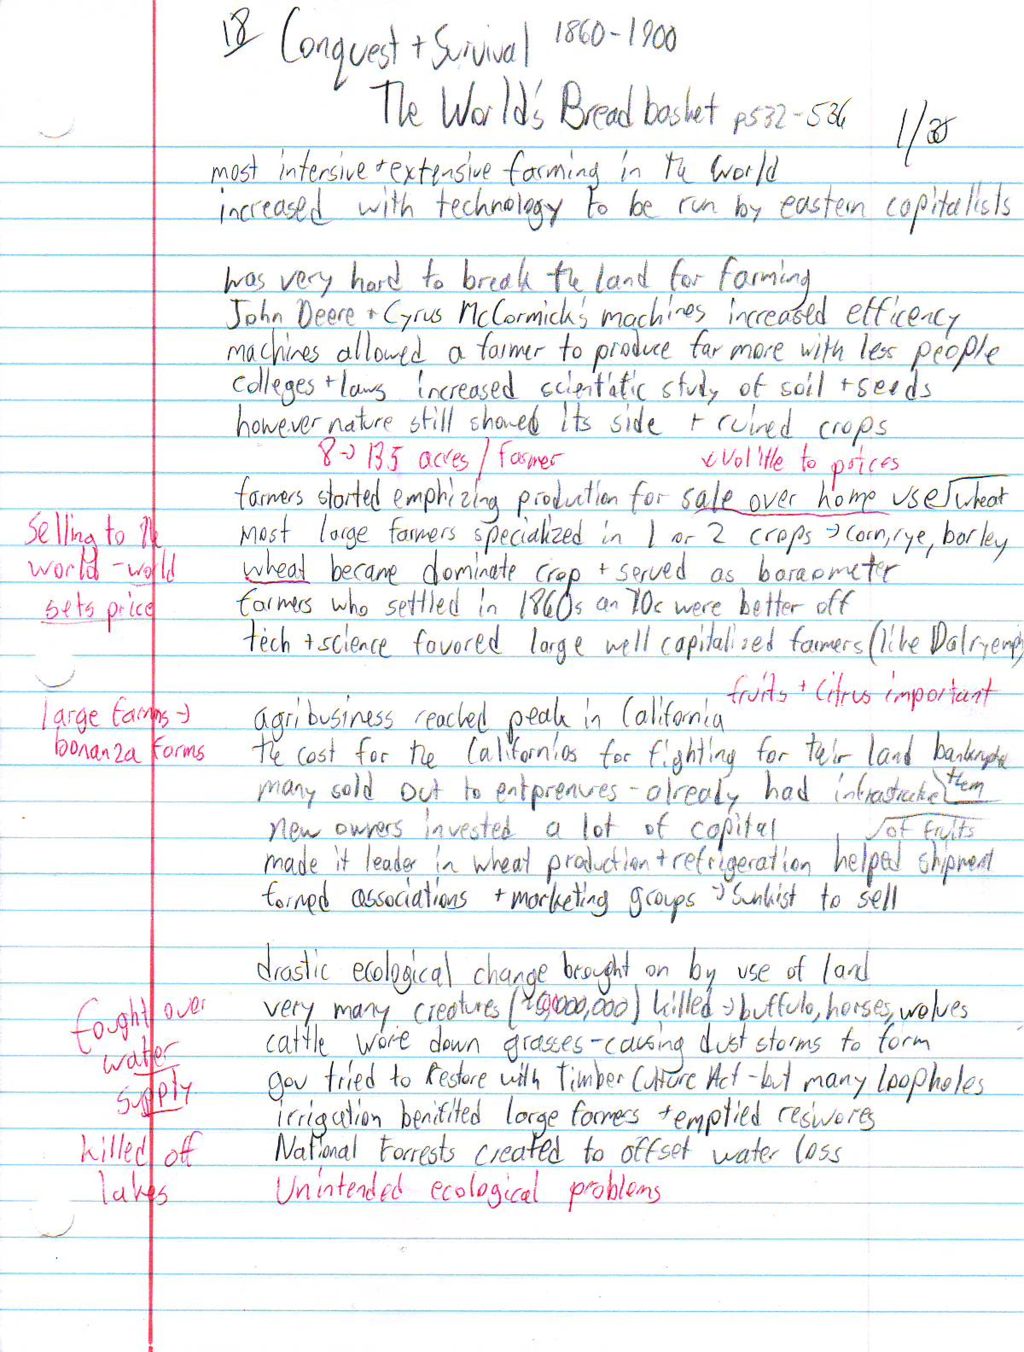 18 Conquest + Survival 1860-1900
The World's Breadbasket p532-536
most intensive + extensive farming in the World
increased with technology to be run by eastern capitalists
was very hard to break the land for farming
John Deere + Cyrus McCormick's machines increased efficency
machines allowed a farmer to produce far more with less people
colleges + laws increased scientific study of soil + seeds
however nature still showed its side + ruined crops
8 → 135 acres / farmer
to prices
farmers started emphizing production for sale over home use
wheat
Selling to the
world - world
sets price
most large farmers specialized in 1 or 2 crops → corn, rye, barley
wheat became dominate crop + served as baraometer
farmers who settled in 1860s an 70s were better off
tech + science favored large well capitalized farmers (like Dalrymple)
fruits + citrus important
large farms →
bonanza farms
agribusiness reached peak in California
the cost for the Californios for fighting for their land
them
many sold out to entprenures - already had
new owners invested a lot of capital
of fruits
made it leader in wheat production + refrigeration helped shipment
formed associations + marketing groups → Sunkist to sell
drastic ecological change brought on by use of land
fought over
water
supply
very many creatures killed → buffulo, horses, wolves
cattle wore down grasses - causing dust storms to form
gov tried to Restore with Timber Culture Act - but many loopholes
irrigation benifited large farmers + emptied resivores
killed off
lakes
National Forrests created to offset water loss
Unintended ecological problems